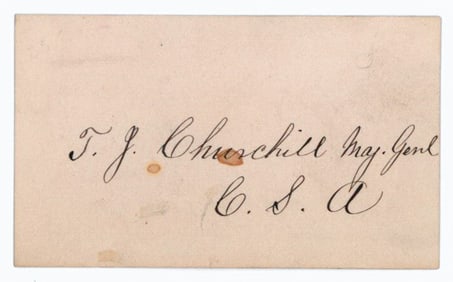 T. J. Churchill Maj. Genl
C. S. A